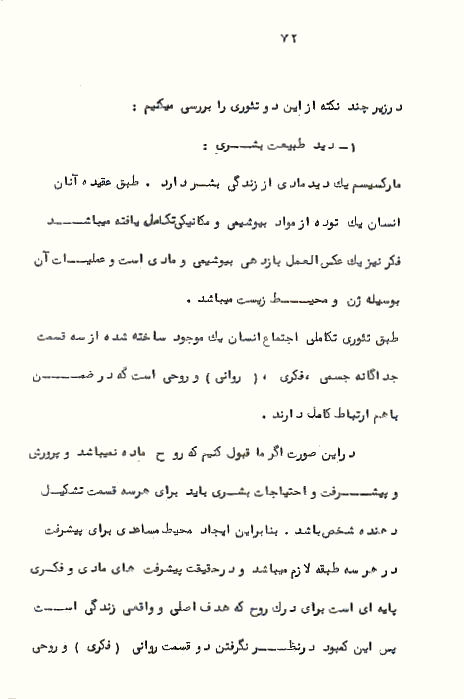 ۷۲
در زیر چند نکته از این دو تئوری را بررسی میکنیم :
۱- دید طبیعت بشـــری :
مارکسیسم یك دید مادی از زندگی بشر دارد . طبق عقیده آنان
انسان یك توده از مواد بیوشیمی و مکانیکی تکامل یافته میباشـــد
فکر نیز یك عکس العمل بازدهی بیوشیمی و مادی است و عملیـــات آن
بوسیله ژن و محیـــط زیست میباشد .
طبق تئوری تکاملی اجتماع انسان یك موجود ساخته شده از سه قسمت
جداگانه جسمی ، فکری ، ( روانی ) و روحی است که در ضمـــن
باهم ارتباط کامل دارند .
در این صورت اگر ما قبول کنیم که روح ماده نمیباشد و پرورش
و پیشـــرفت و احتیاجات بشری باید برای هر سه قسمت تشکیـل
دهنده شخص باشد . بنابراین ایجاد محیط مساعدی برای پیشرفت
در هر سه طبقه لازم میباشد و در حقیقت پیشرفت های مادی و فکـری
پایه ای است برای درك روح که هدف اصلی و واقعی زندگی اســـت
پس این کمبود در نظـــر نگرفتن دو قسمت روانی ( فکری ) و روحی